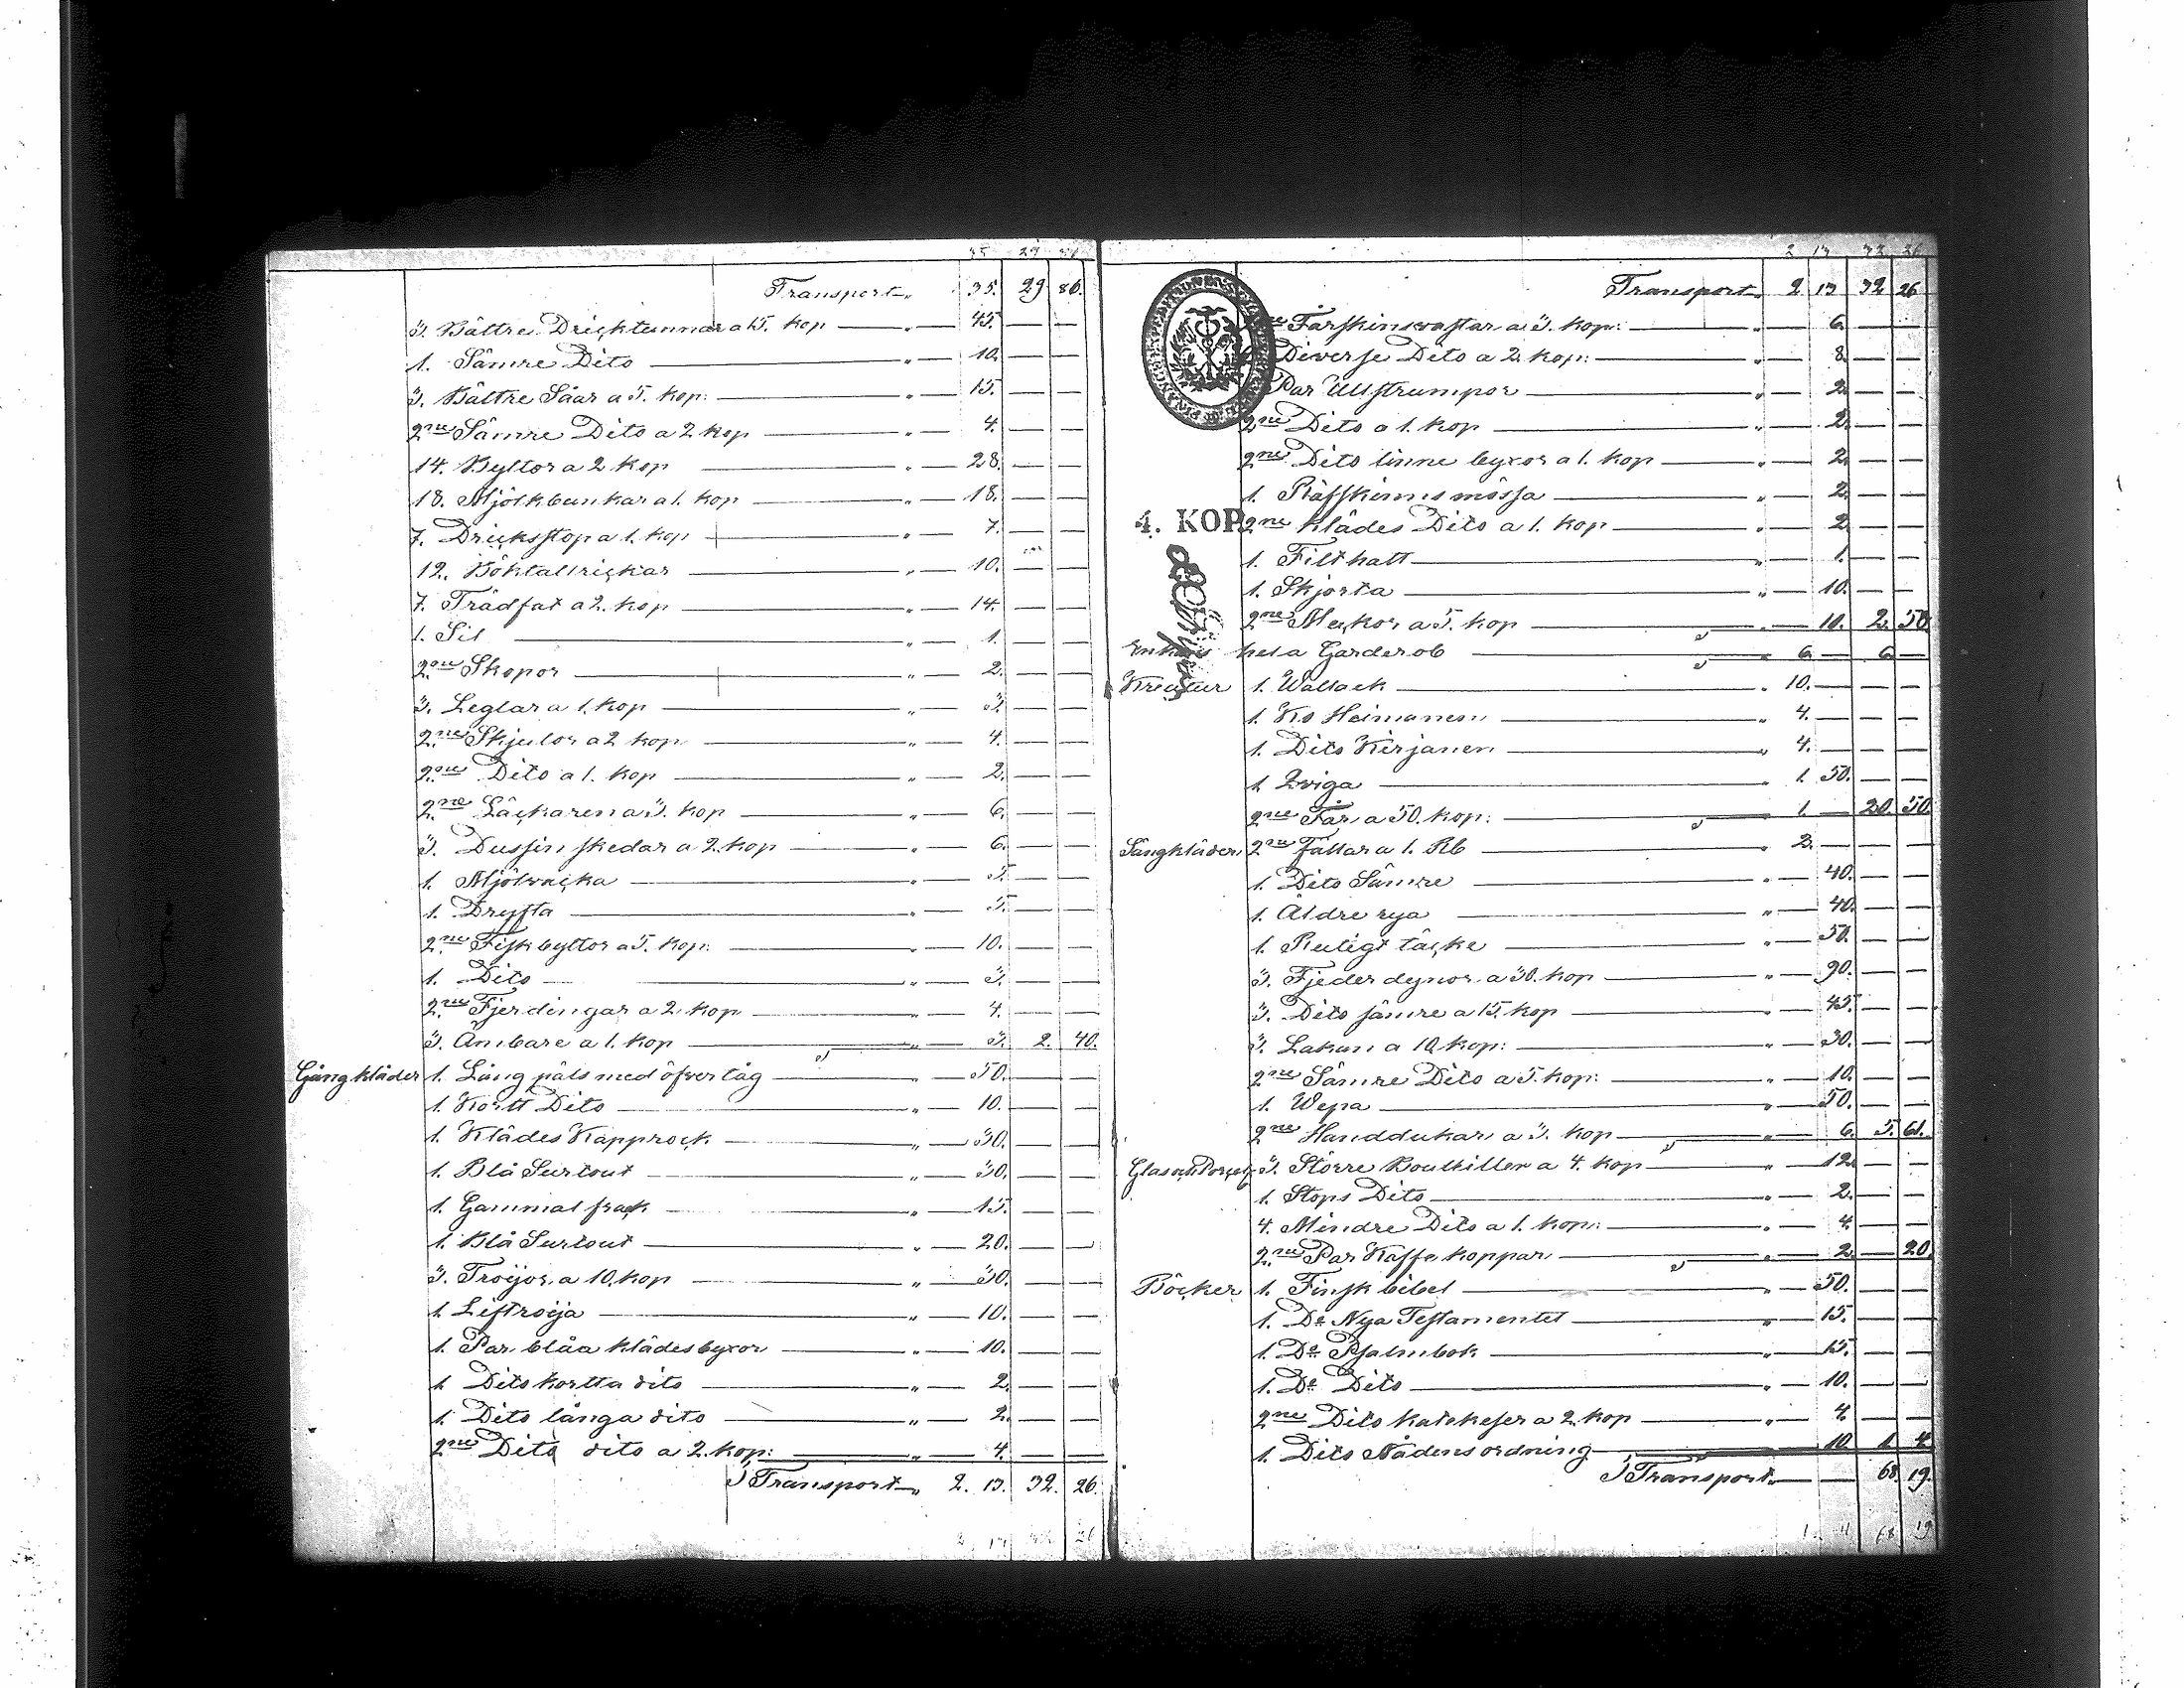 35 29 86
Transport „ 35. 29 86.
3. Bättre Dricktunnar a 15. kop — „ — 45. — —
1. Sämre Dito — „ — 10. — —
3. Bättre Såar a 5. kop: — „ — 15. — —
2ne Sämre Dito a 2 kop — „ — 4. — —
14. Byltor a 2 kop — „ — 28. — —
18. Mjölkbunkar a 1. kop — „ — 18. — —
7. Dricksstop a 1. kop — „ — 7. — —
12. Böktallrickar — „ — 10. — —
7. Trädfat a 2. kop — „ — 14. — —
1. Sil — „ — 1. — —
2ne Skopor — „ — 2. — —
3. Leglar a 1. kop — „ — 3. — —
2ne Skjulor a 2 kop — „ — 4. — —
2ne Dito a 1. kop — „ — 2. — —
2ne Säckaren a 3. kop — „ — 6. — —
3. Dussin skedar a 2. kop — „ — 6. — —
1. Mjölvacka — „ — 5. — —
1. Dryfta — „ — 5. — —
2ne Fiskbyttor a 5. kop: — „ — 10. — —
1. Dito — „ — 3. — —
2ne Fjerdingar a 2. kop — „ — 4. — —
3. Ämbare a 1. kop — „ — 3. 2. 40.
Gångkläder 1. Lång päls med öfvertåg — „ — 50. — —
1. Kortt Dito — „ — 10. — —
1. Klädes Kapprock — „ — 30. — —
1. Blå Surtout — „ — 30. — —
1. Gammal frack — „ — 15. — —
1. Blå Surtout — „ — 20. — —
3. Tröijor a 10. kop — „ — 30. — —
1. Lifströija — „ — 10. — —
1. Par blåa klädesbyxor — „ — 10. — —
1. Dito kortta dito — „ — 2. — —
1. Dito långa dito — „ — 2. — —
2ne Dito dito a 2. kop: — „ — 4. — —
Transport „ 2. 13. 32. 26.
2 13 32 26
2 13 32 26
Transport „ 2 13 32 26
Fårskinsvästar a 3. kop: — „ — 6. — —
Diverse Dito a 2. kop: — „ — 8. — —
Par Ullstrumpor — „ — 2. — —
2ne Dito a 1. kop — „ — 2. — —
2ne Dito linne byxor a 1. kop — „ — 2. — —
1. Räfskinnsmössa — „ — 2. — —
4. KOP.
2ne klädes Dito a 1. kop — „ — 2. — —
1. Filthatt — „ — 1. — —
1. Skjorta — „ — 10. — —
2ne Muckor a 5. kop — „ — 10. 2. 50
Enkans hela Garderob — „ 6. — 6. —
Kreatur 1. Wallack — „ 10. — — —
1. Ko Heimanen — „ 4. — — —
1. Dito Kirjanen — „ 4. — — —
1. Qviga — „ 1. 50. — —
2ne Får a 50. kop: — 1. — 20. 50.
Sängkläder 2ne Fällar a 1. Rb — „ 2. — — —
1. Dito Sämre — „ — 40. — —
1. Äldre rya — „ — 40. — —
1. Rutigt täcke — „ — 50. — —
3. Fjederdynor a 30. kop — „ — 90. — —
3. Dito sämre a 15. kop — „ — 45. — —
3. Lakan a 10. kop: — „ — 30. — —
2ne Sämre Dito a 5. kop: — „ — 10. — —
1. Wepa — „ — 50. — —
2ne Handdukar a 3. kop — „ — 6. 5. 61.
3. Större Boutkiller a 4. kop — „ — 12. — —
1. Stops Dito — „ — 2. — —
4. Mindre Dito a 1. kop: — „ — 4. — —
2ne Par Kaffe koppar — „ — 2. — 20.
Böcker 1. Finsk bibel — „ — 50. — —
1. Do Nya Testamentet — „ — 15. — —
1. Do Psalmbok — „ — 15. — —
1. Do Dito — „ — 10. — —
2ne Dito katekeser a 2. kop — „ — 4. — —
1. Dito Nådens ordning — 10. 1. 4.
Transport „ — — 68. 19.
1 4 68 19